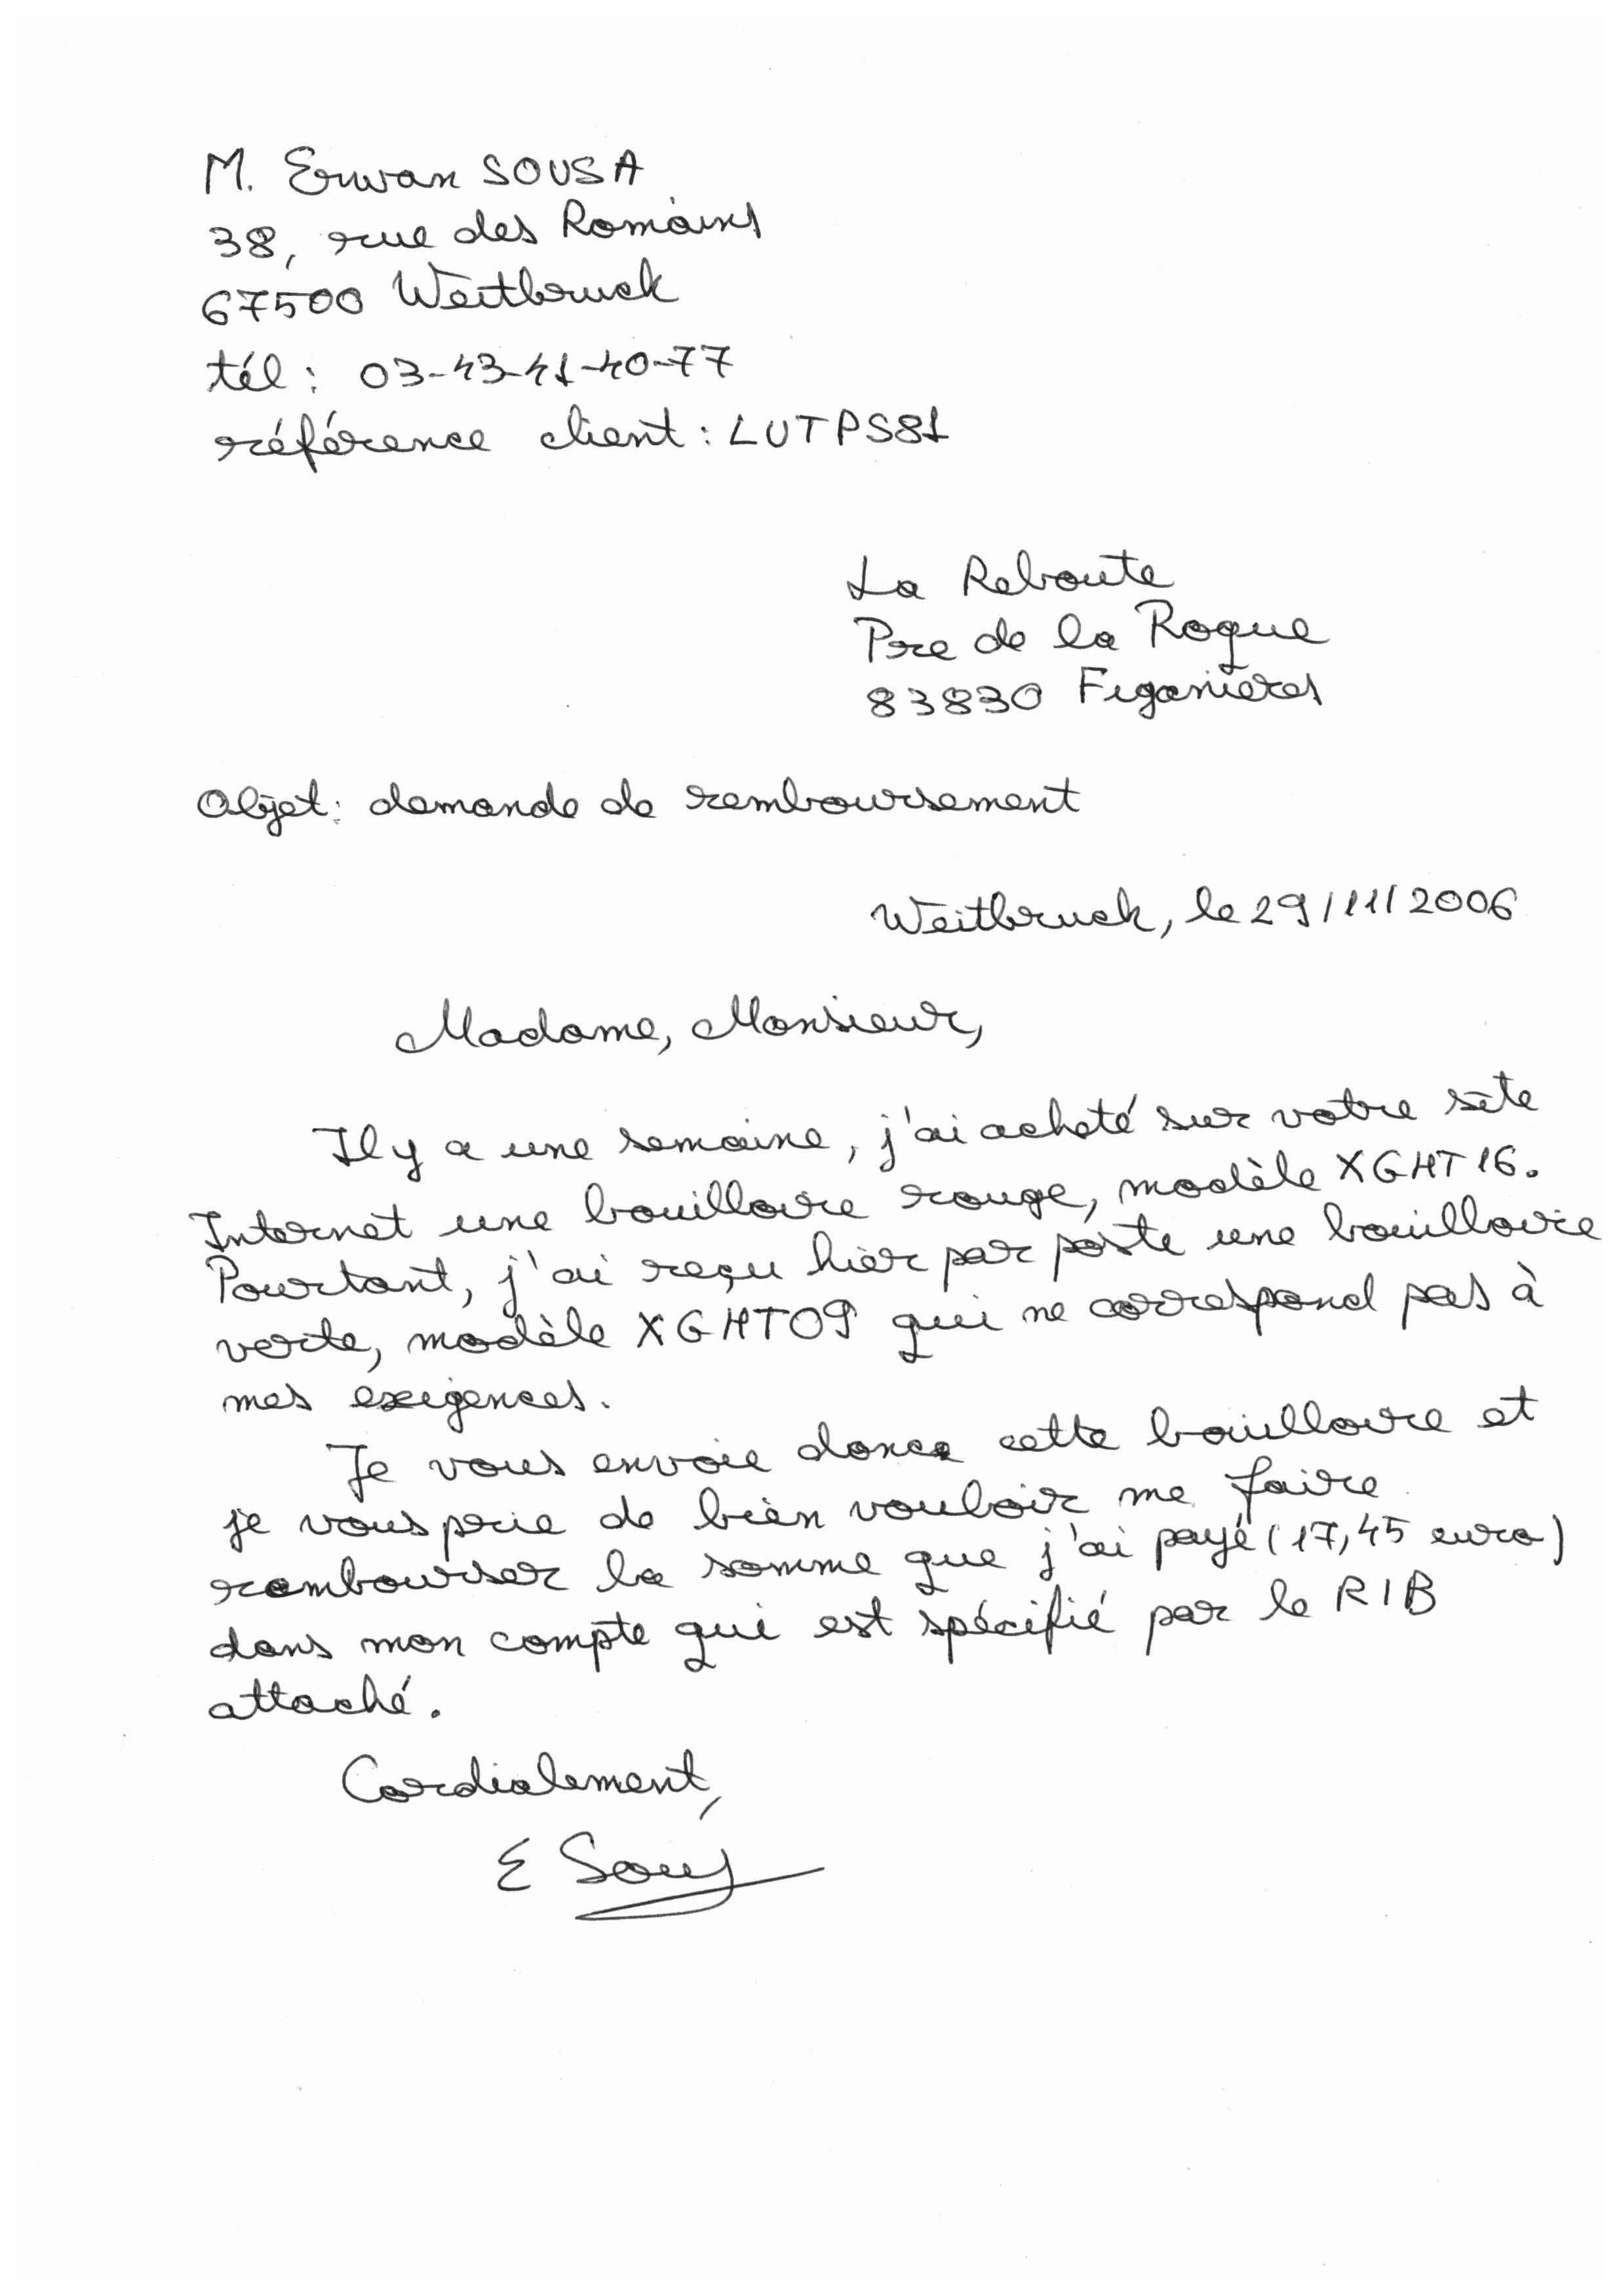 M. Erwan SOUSA
38, rue des Romains
67500 Weitbruck
tél : 03-43-41-40-77
référence client : LUTPS81
La Reboute
Pre de la Roque
83830 Figanieres
Objet : demande de remboursement
Weitbruck, le 29/11/2006
Madame, Monsieur,
Il y a une semaine, j'ai acheté sur votre site
Internet une bouilloire rouge, modèle XGHT16.
Pourtant, j'ai reçu hier par poste une bouilloire
verte, modèle XGHT09 qui ne correspond pas à
mes exigences.
Je vous envoie donc cette bouilloire et
je vous prie de bien vouloir me faire
rembourser la somme que j'ai payé (17,45 euro)
dans mon compte qui est spécifié par le RIB
attaché.
Cordialement,
E Sous